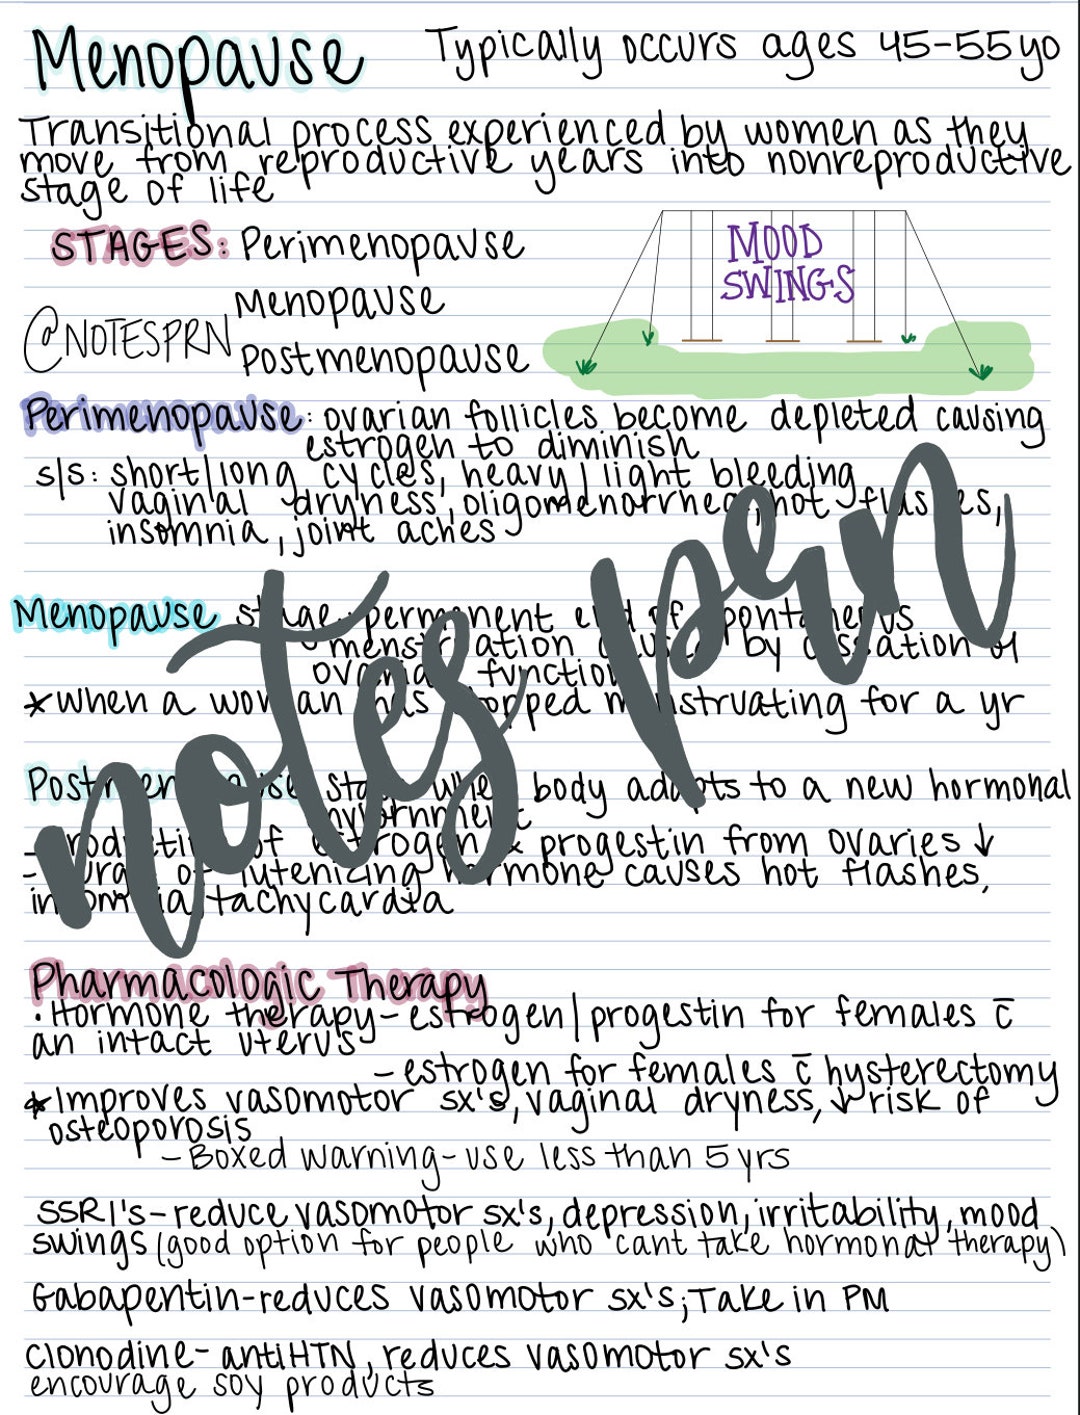 Menopause Typically occurs ages 45-55yo
Transitional process experienced by women as they
move from reproductive years into nonreproductive
stage of life
STAGES: Perimenopause
MOOD
SWINGS
Menopause
@NOTESPRN
Postmenopause
Perimenopause: ovarian follicles become depleted causing
estrogen to diminish
s/s: short/long cycles, heavy/light bleeding
vaginal dryness, oligomenorrhea, hot flashes,
insomnia, joint aches
notes prn
Menopause stage: permanent end of spontaneous
menstruation caused by cessation of
ovarian function
*when a woman has stopped menstruating for a yr
Postmenopause: stage when body adapts to a new hormonal
- production of estrogen & progestin from ovaries ↓
- of lutenizing hormone causes hot flashes,
insomnia, tachycardia
Pharmacologic Therapy
• Hormone therapy- estrogen/progestin for females c̄
an intact uterus
- estrogen for females c̄ hysterectomy
*Improves vasomotor sx's, vaginal dryness, ↓ risk of
osteoporosis
- Boxed warning- use less than 5 yrs
SSRI's- reduce vasomotor sx's, depression, irritability, mood
swings (good option for people who cant take hormonal therapy)
Gabapentin-reduces vasomotor sx's; Take in PM
Clonodine- antiHTN, reduces vasomotor sx's
encourage soy products